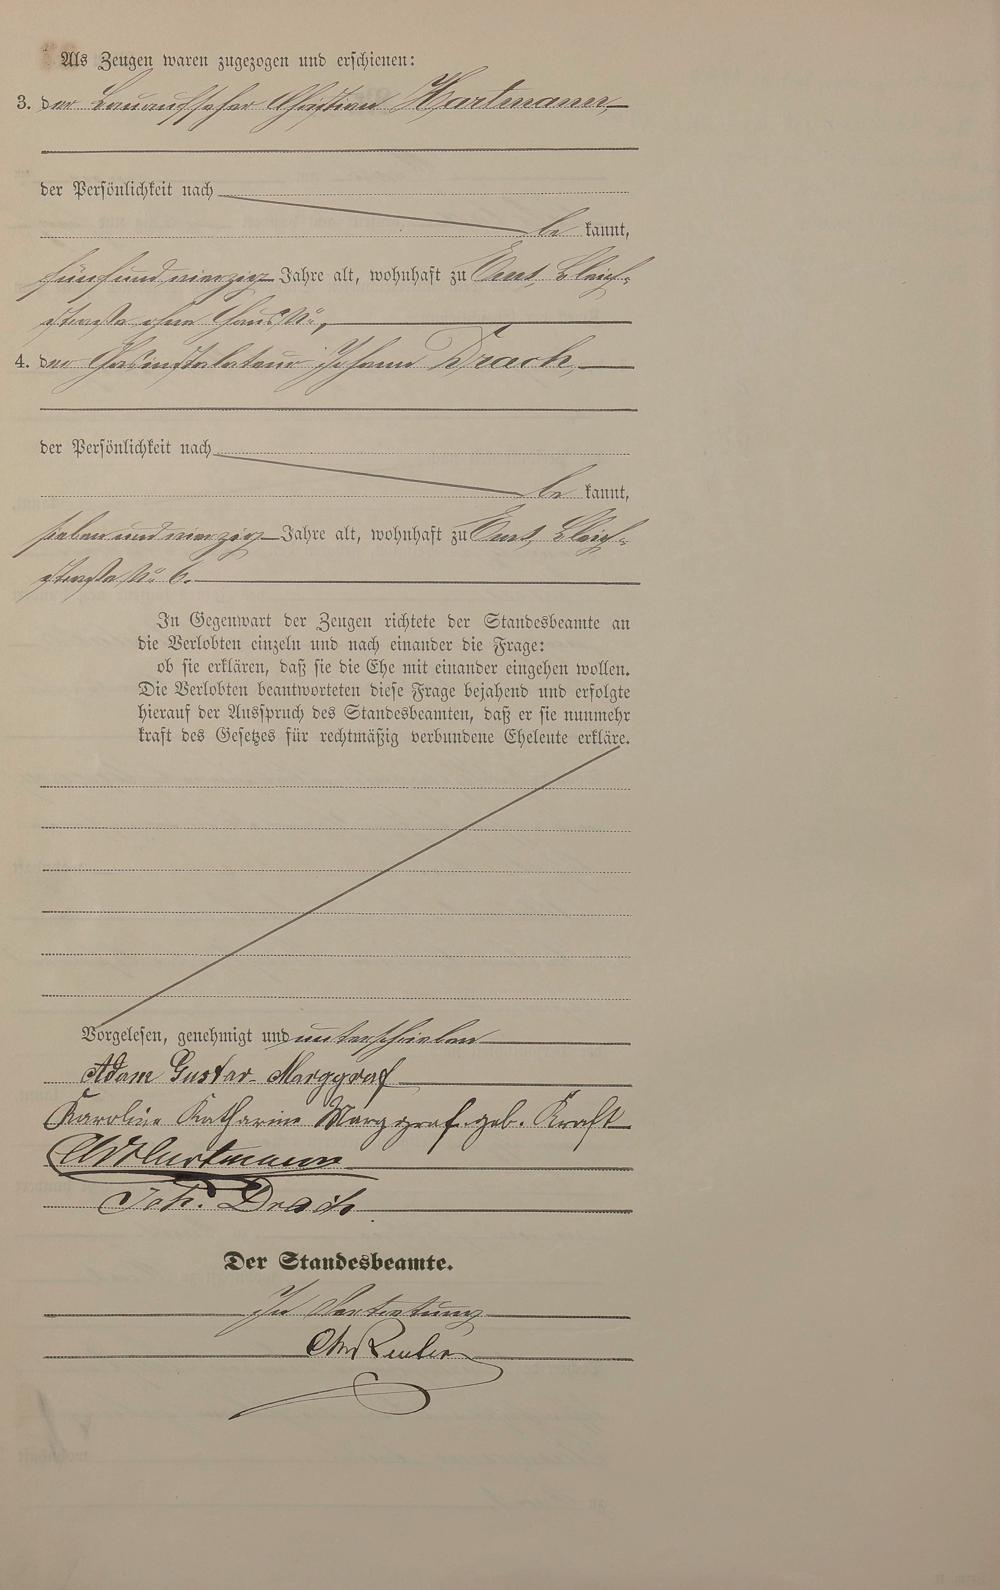 Als Zeugen waren zugezogen und erschienen:
3. der Bauaufseher Christian Hartmann,
der Persönlichkeit nach
be kannt,
fünfundvierzig Jahre alt, wohnhaft zu Ems, Bleich-
straße ohne Haus No,
4. der Gasinstalateur Johann Drach,
der Persönlichkeit nach
be kannt,
siebenundvierzig Jahre alt, wohnhaft zu Ems, Bleich-
straße No 6.
In Gegenwart der Zeugen richtete der Standesbeamte an
die Verlobten einzeln und nach einander die Frage:
ob sie erklären, daß sie die Ehe mit einander eingehen wollen.
Die Verlobten beantworteten diese Frage bejahend und erfolgte
hierauf der Ausspruch des Standesbeamten, daß er sie nunmehr
kraft des Gesetzes für rechtmäßig verbundene Eheleute erkläre.
Vorgelesen, genehmigt und unterschrieben
Adam Gustav Marggraf
Karoline Katharine Marggraf geb. Kraft
Hartmann
Joh. Drach
Der Standesbeamte.
In Vertretung